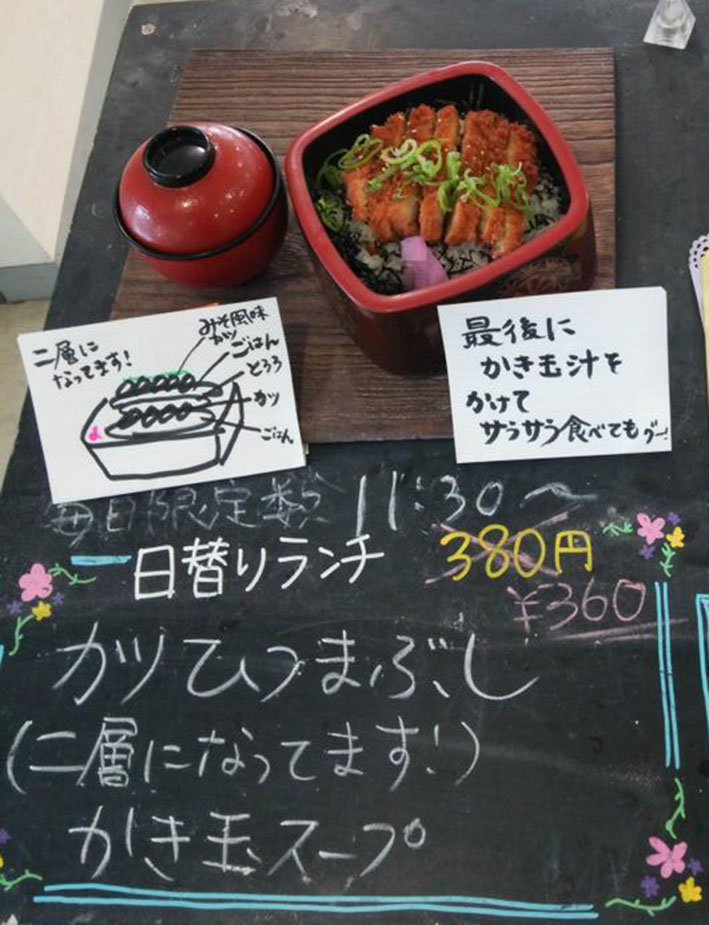 二層に
なってます!
みそ風味
カツ
ごはん
とろろ
カツ
ごはん
最後に
かき玉汁を
かけて
サラサラ食べてもグー!
毎日限定数 11:30～
日替りランチ 380円
¥360
カツひつまぶし
(二層になってます!)
かき玉スープ